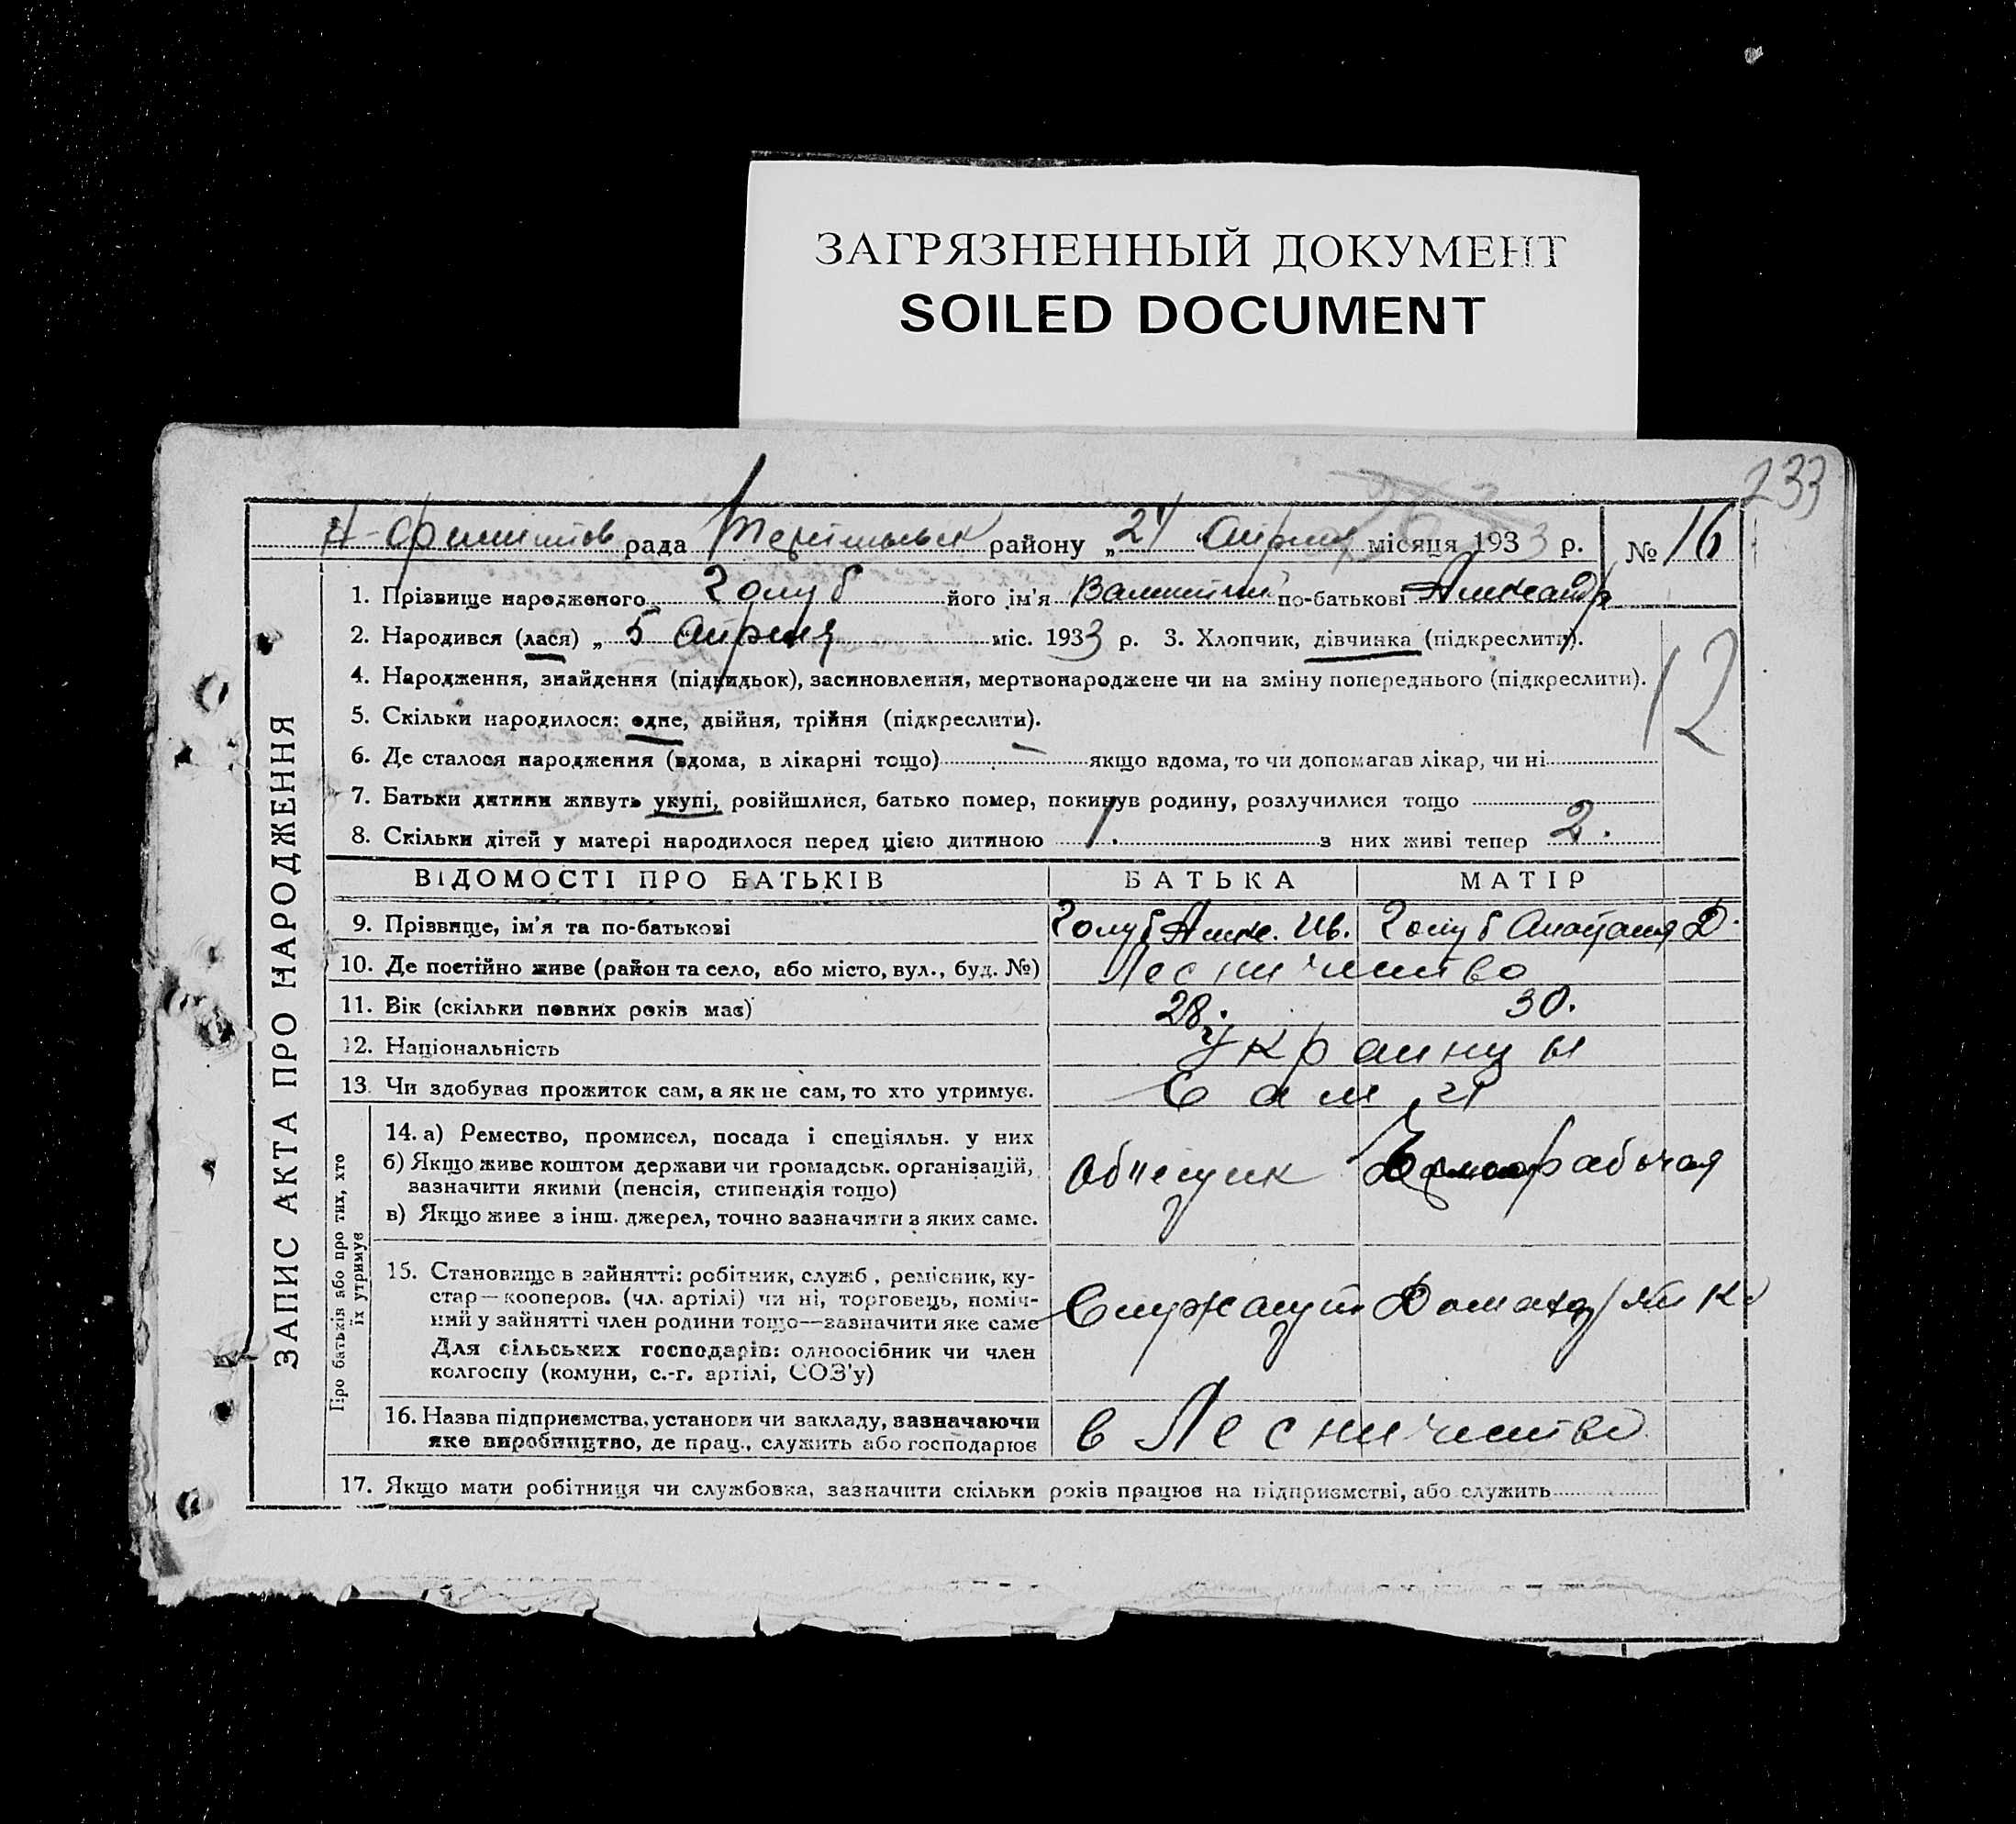 ЗАГРЯЗНЕННЫЙ ДОКУМЕНТ
SOILED DOCUMENT
233
рада району „24 Апреля місяця 1933 р. № 16
1. Прізвище народженого Голуб його ім'я по-батькові Александр
2. Народився (лася) „ 5 Апреля міс. 1933 р. 3. Хлопчик, дівчинка (підкреслити).
12
4. Народження, знайдення (підкидьок), засиновлення, мертвонароджене чи на зміну попереднього (підкреслити).
5. Скільки народилося: одне, двійня, трійня (підкреслити).
6. Де сталося народження (вдома, в лікарні тощо) — якщо вдома, то чи допомагав лікар, чи ні
7. Батьки дитини живуть укупі, розійшлися, батько помер, покинув родину, розлучилися тощо
8. Скільки дітей у матері народилося перед цією дитиною 1. з них живі тепер 2.
ЗАПИС АКТА ПРО НАРОДЖЕННЯ
ВІДОМОСТІ ПРО БАТЬКІВ БАТЬКА МАТІР
9. Прізвище, ім'я та по-батькові Голуб Алек. Ив. Голуб Анастасия Д.
10. Де постійно живе (район та село, або місто, вул., буд. №) Лесничество
11. Вік (скільки повних років має) 28. 30.
12. Національність Украинцы
13. Чи здобуває прожиток сам, а як не сам, то хто утримує. Сам
Про батьків або про тих, хто
їх утримує
14. а) Ремество, промисел, посада і спеціяльн. у них
б) Якщо живе коштом держави чи громадськ. організацій,
зазначити якими (пенсія, стипендія тощо)
в) Якщо живе з інш. джерел, точно зазначити з яких саме.
Объещик Чернорабочая
15. Становище в зайнятті: робітник, служб., ремісник, ку-
стар—кооперов. (чл. артілі) чи ні, торговець, поміч-
ний у зайнятті член родини тощо—зазначити яке саме
Для сільських господарів: одноосібник чи член
колгоспу (комуни, с.-г. артілі, СОЗ'у)
Служащий
16. Назва підприємства, установи чи закладу, зазначаючи
яке виробництво, де прац., служить або господарює
в Лесничестве
17. Якщо мати робітниця чи службовка, зазначити скільки років працює на підприємстві, або служить